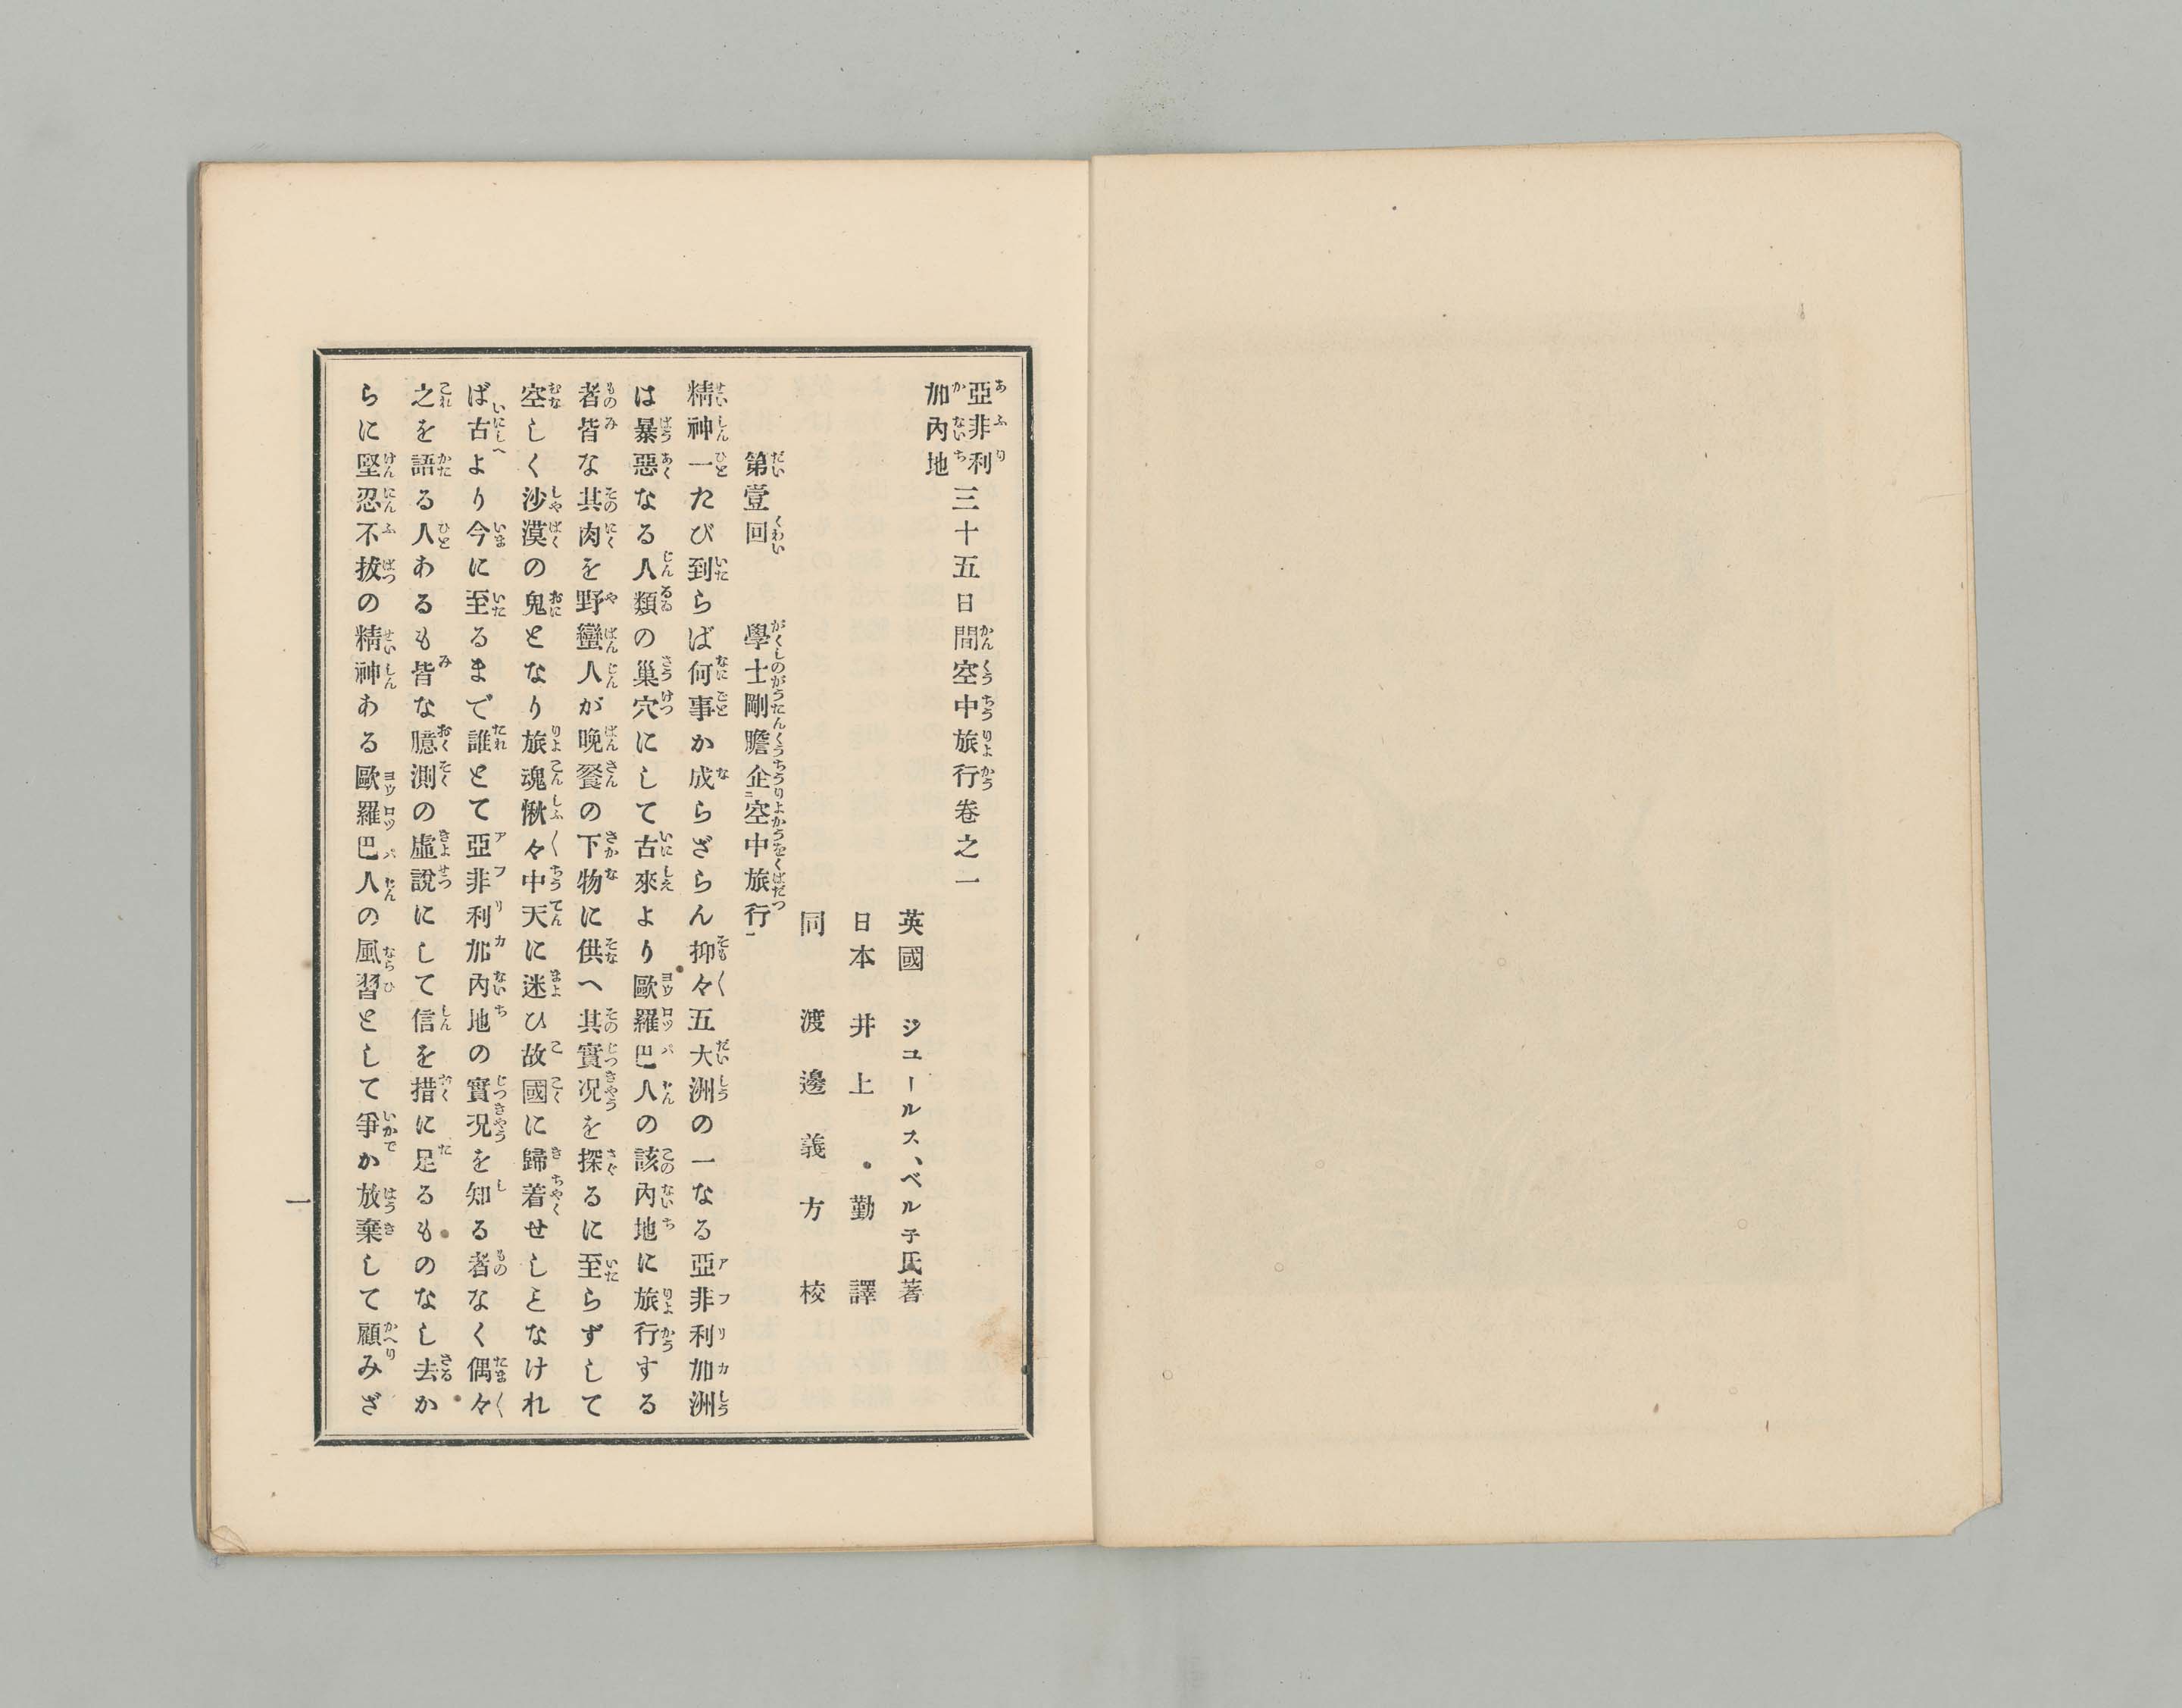 亞非利加內地三十五日間空中旅行卷之一
英國 ジユールス、ベル子氏著
日本 井上勤譯
同 渡邊義方校
第壹回 學士剛膽企二空中旅行一
精神一たび到らば何事か成らざらん抑々五大洲の一なる亞非利加洲
は暴惡なる人類の巢穴にして古來より歐羅巴人の該內地に旅行する
者皆な其肉を野蠻人が晩餐の下物に供へ其實況を探るに至らずして
空しく沙漠の鬼となり旅魂愀々中天に迷ひ故國に歸着せしとなけれ
ば古より今に至るまで誰とて亞非利加內地の實況を知る者なく偶々
之を語る人あるも皆な臆測の虛說にして信を措に足るものなし去か
らに堅忍不拔の精神ある歐羅巴人の風習として爭か放棄して顧みざ
一